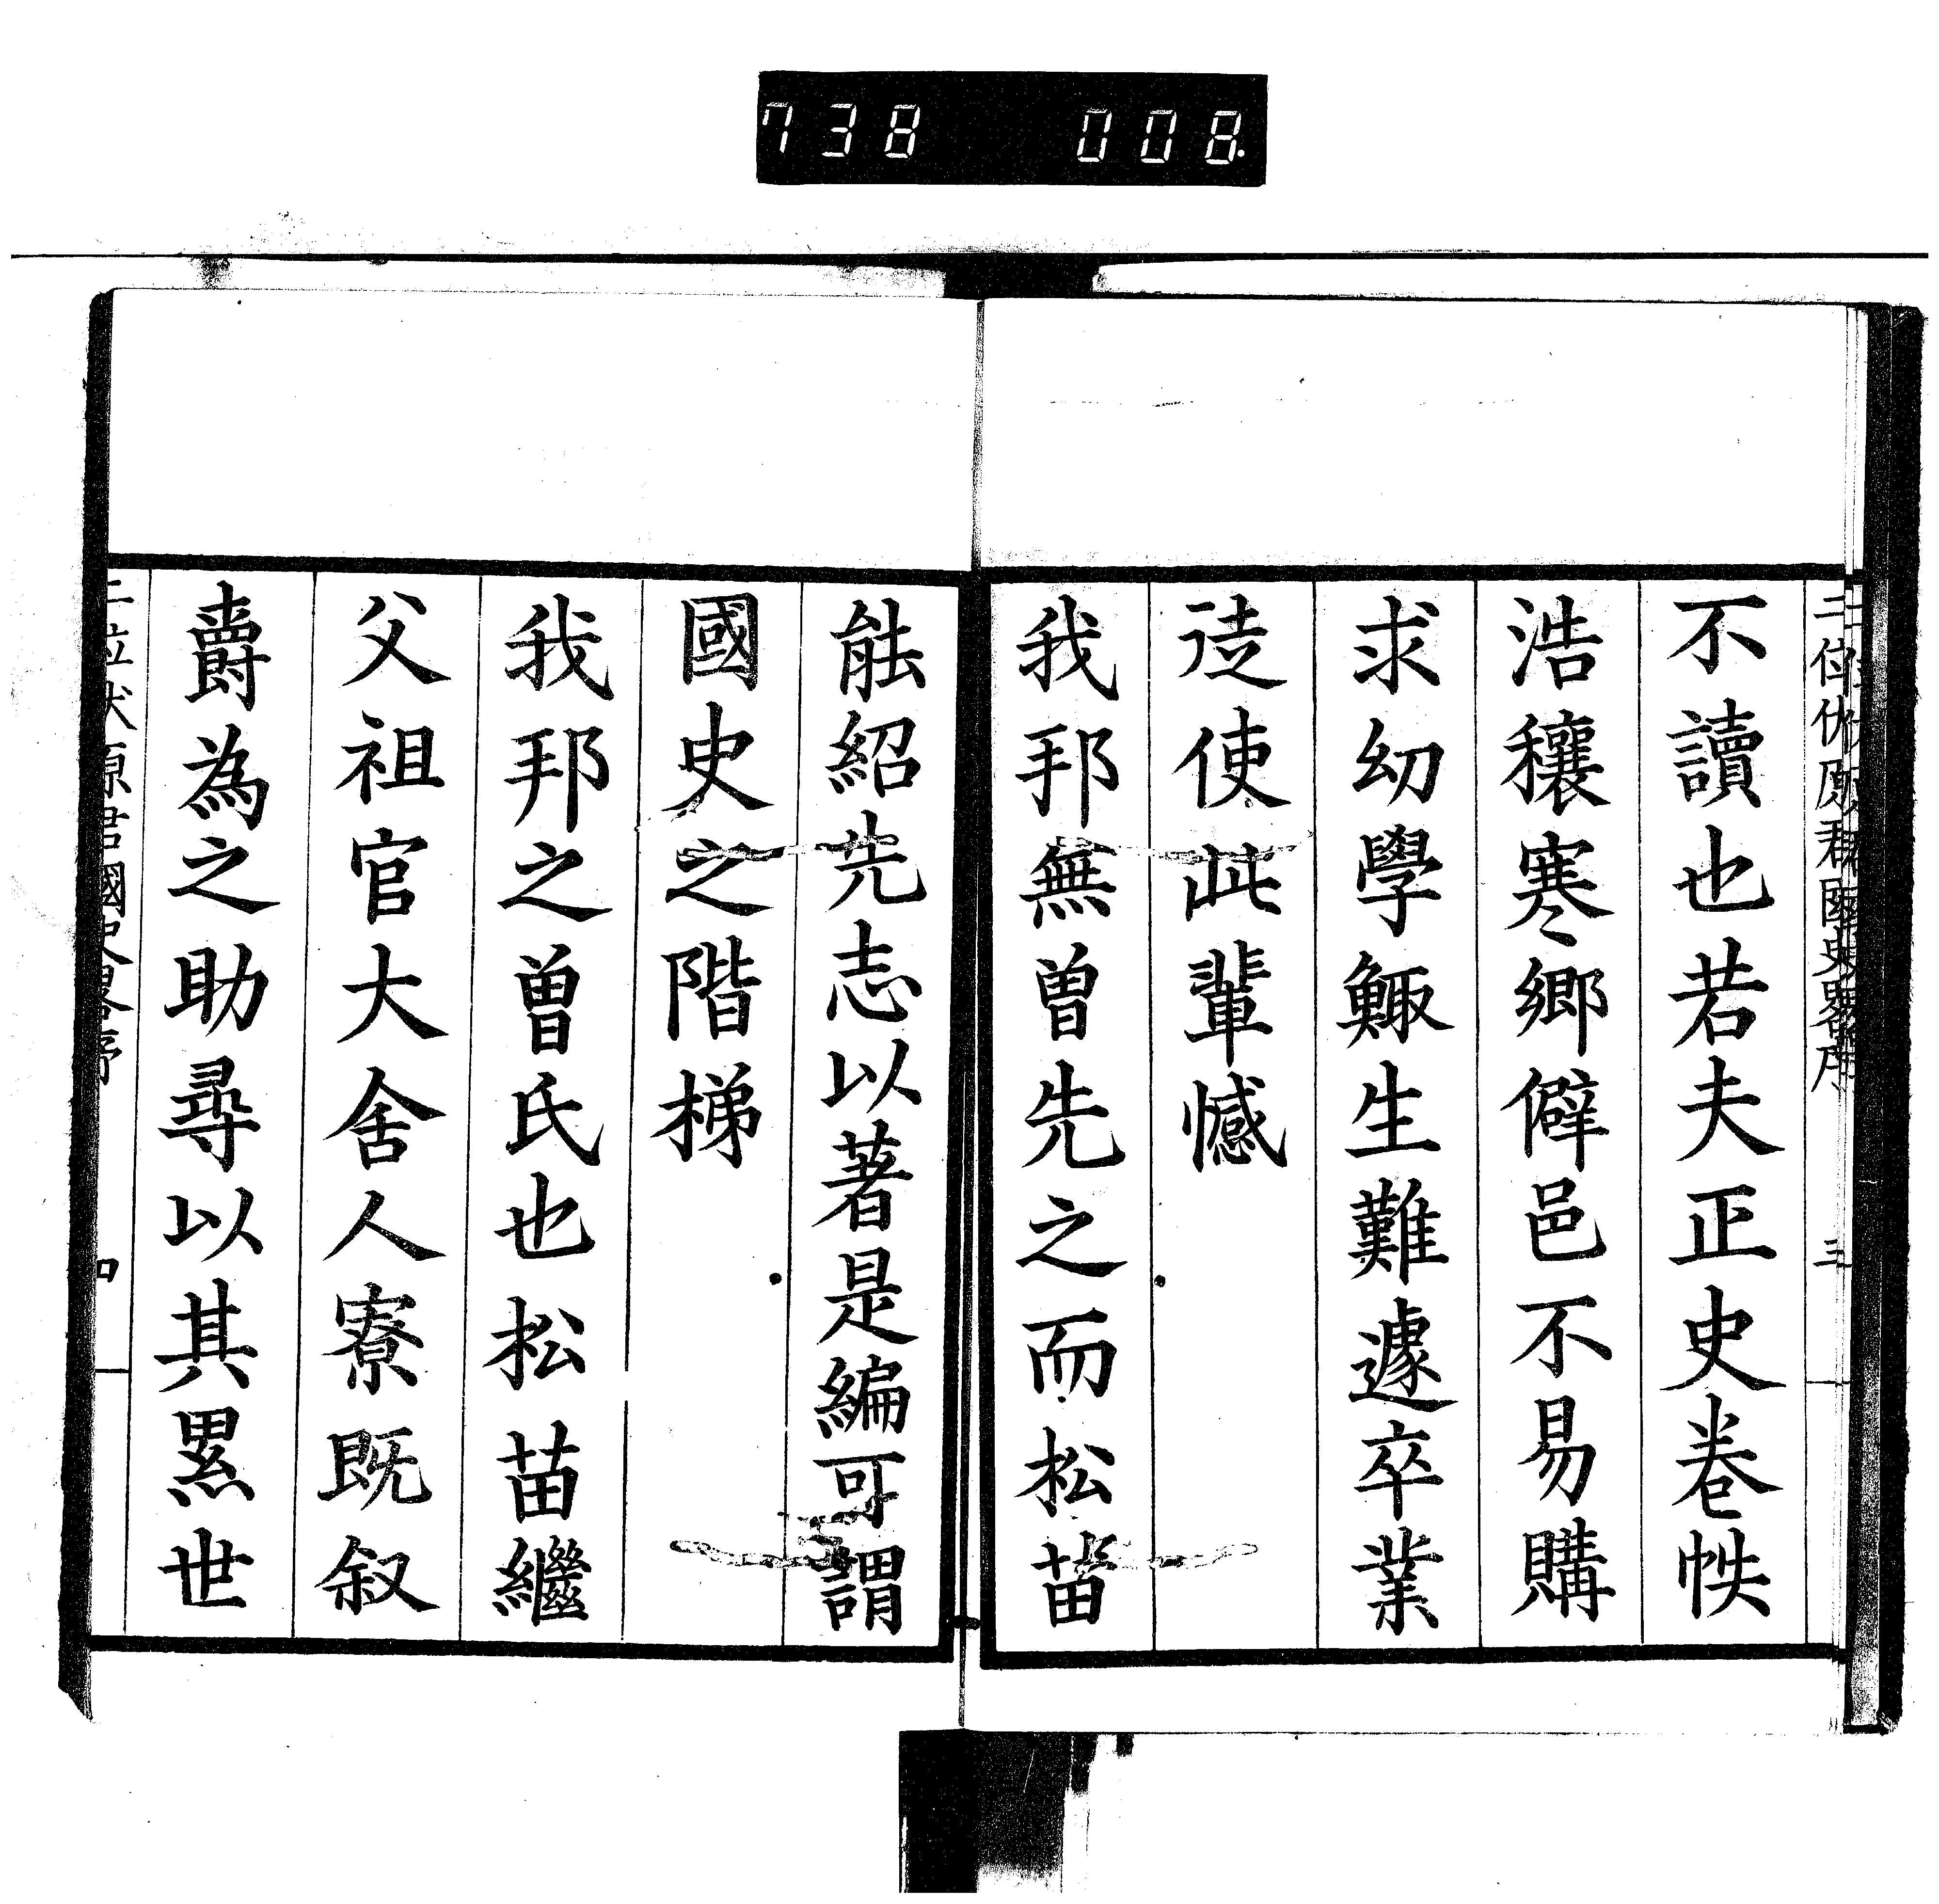 738 008
二位伏原君國史畧序 三
不讀也若夫正史卷帙
浩穰寒鄉僻邑不易購
求幼學鯫生難遽卒業
徒使此輩憾
我邦無曽先之而松苗
能紹先志以著是編可謂
國史之階梯
我邦之曽氏也松苗繼
父祖官大舍人寮既叙
爵為之助尋以其累世
二位伏原君國史畧序 四